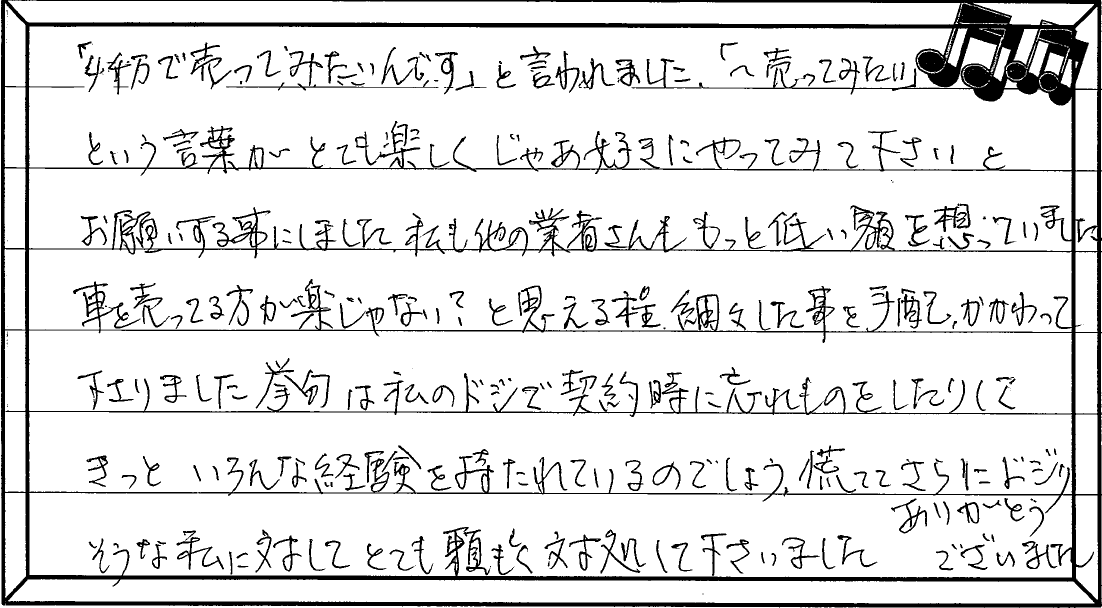 「4千万で売ってみたいんです」と言われました。「〜売ってみたい」
という言葉がとても楽しくじゃあ好きにやってみて下さいと
お願いする事にしました。私も他の業者さんももっと低い額を想っていました
車を売ってる方が楽じゃない?と思える程、細々した事を手配、かかわって
下さりました 挙句は私のドジで契約時に忘れものをしたりして
きっと いろんな経験を持たれているのでしょう、慌ててさらにドジり
そうな私に対してとても頼もしく対処して下さいました
ありがとう
ございました